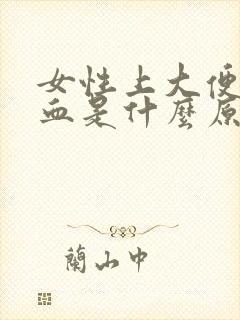 女性上大便
血是什麼原
蘭山中